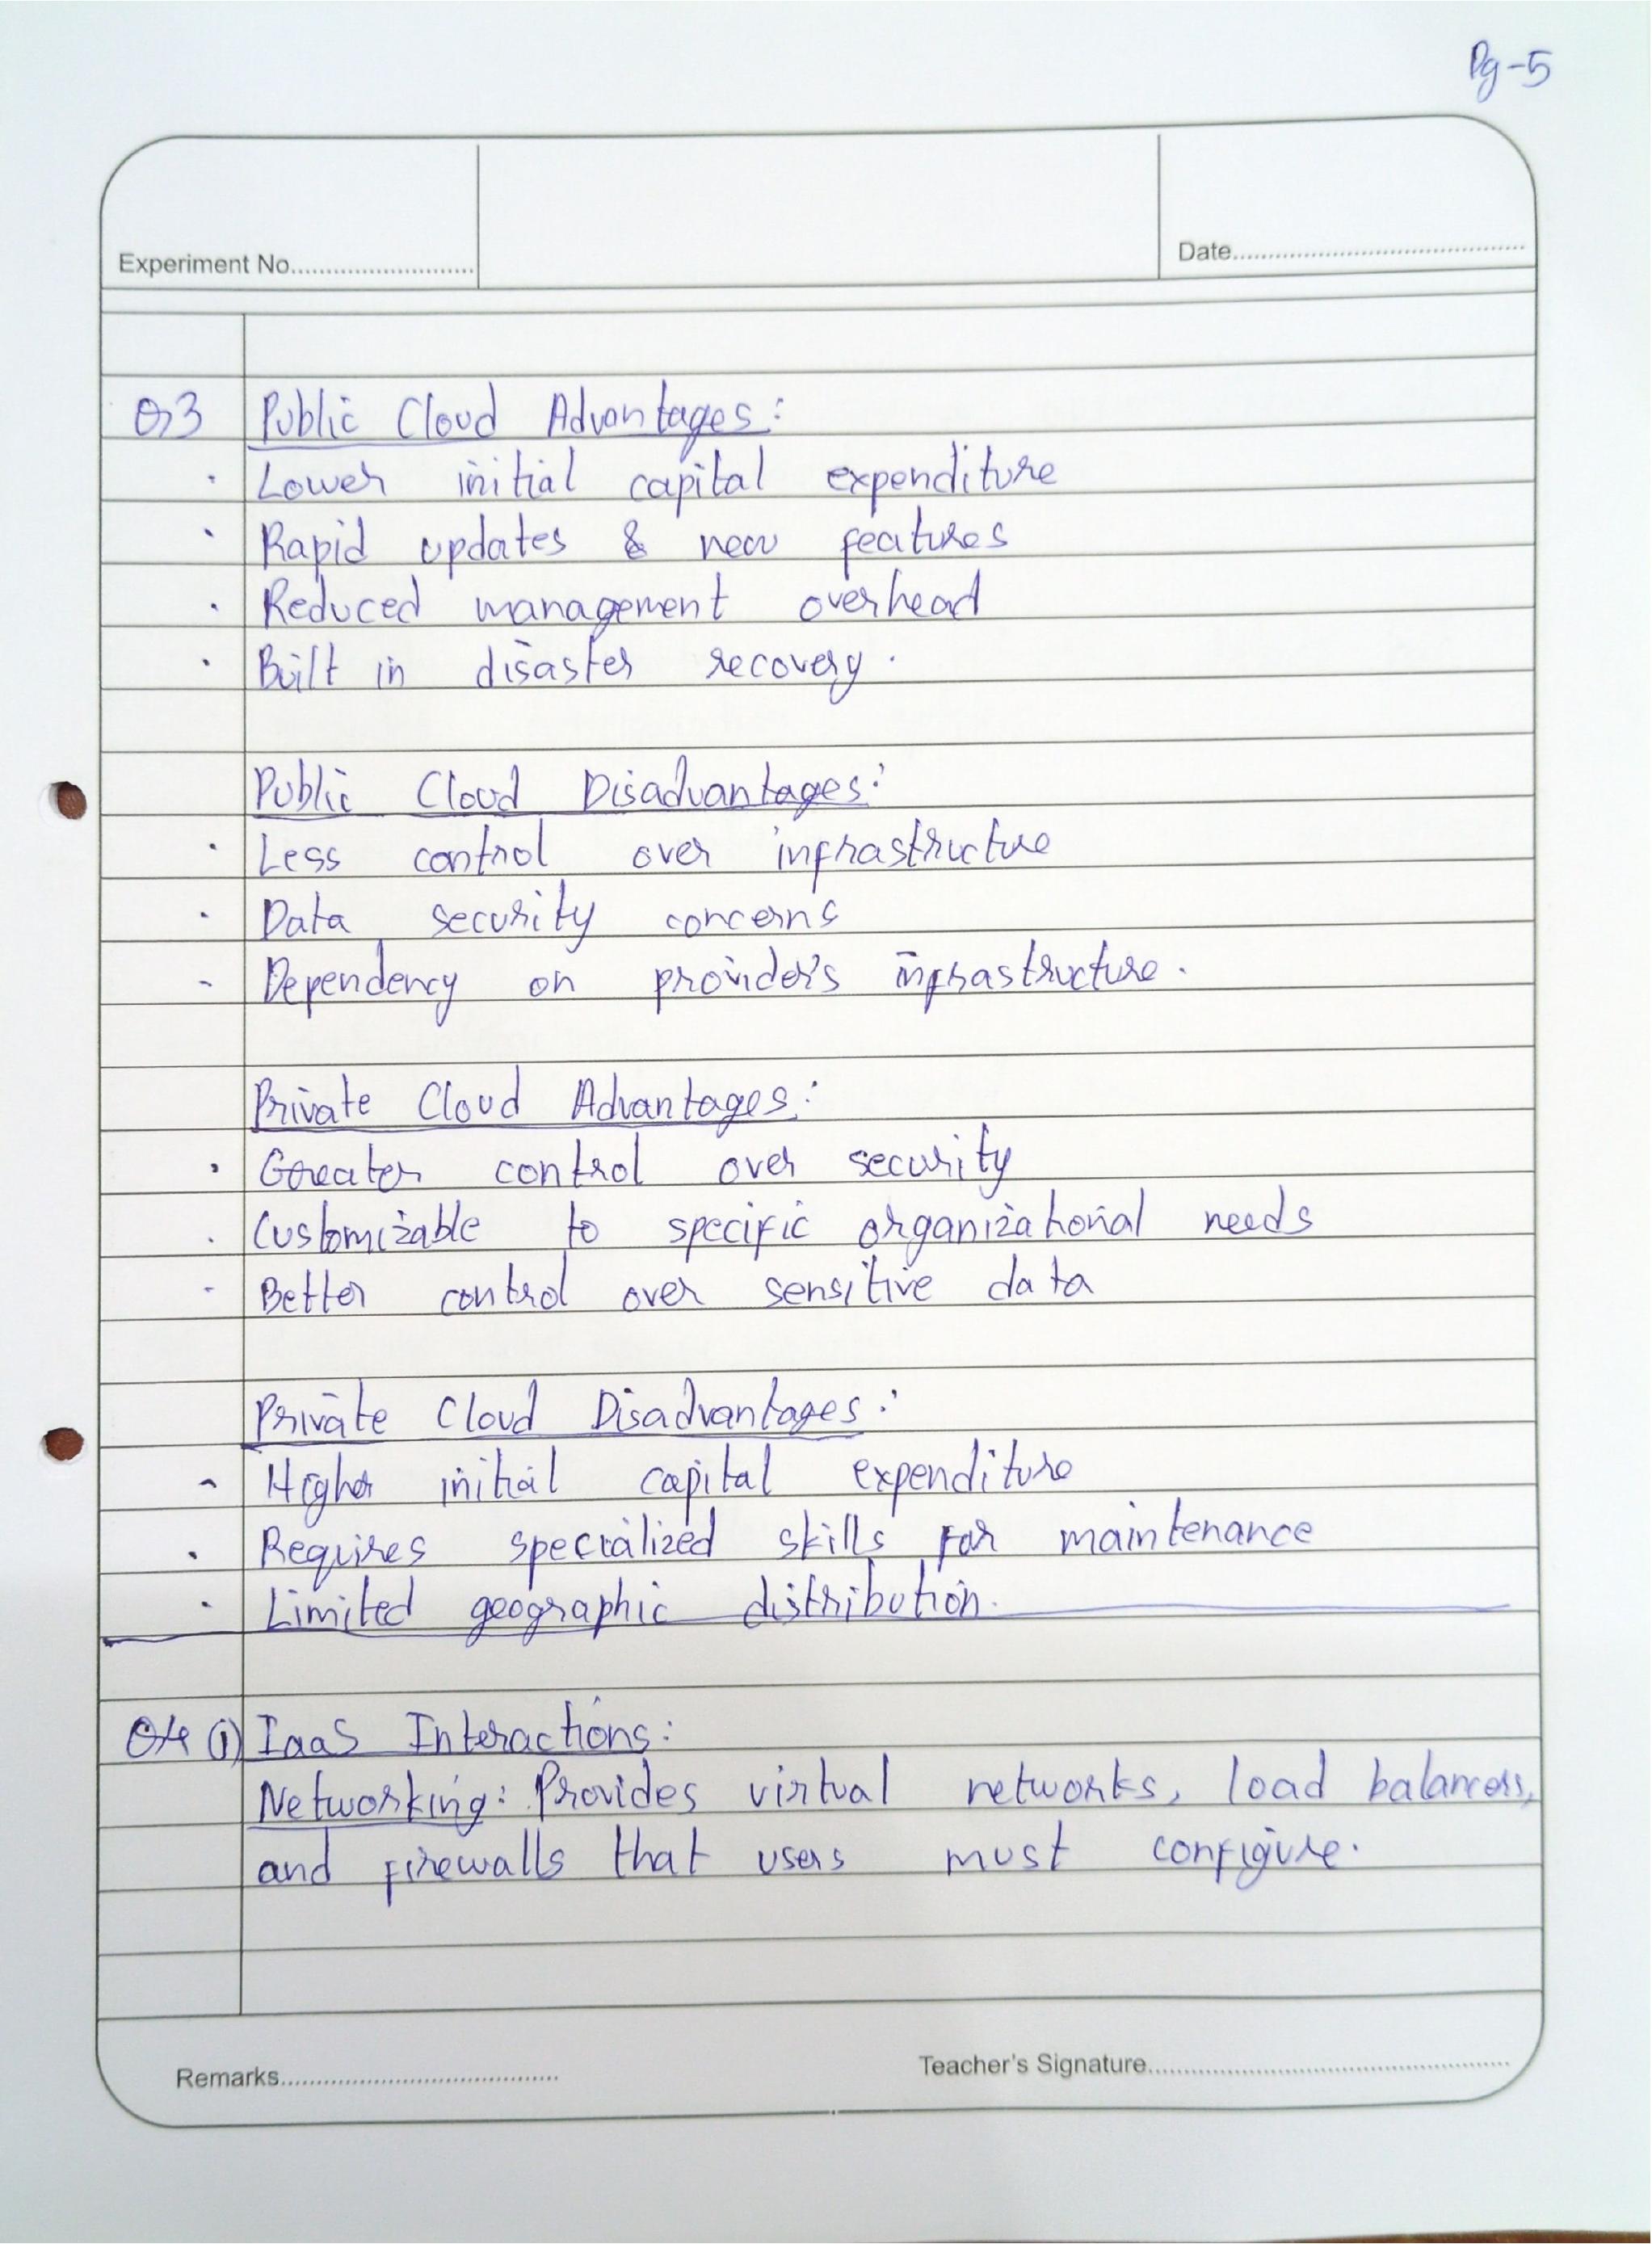 Pg-5
Experiment No.
Date
Q3 Public Cloud Advantages:
· Lower initial capital expenditure
· Rapid updates & new features
· Reduced management overhead
· Built in disaster recovery.
Public Cloud Disadvantages:
· Less control over infrastructure
· Data security concerns
- Dependency on provider's infrastructure.
Private Cloud Advantages:
· Greater control over security
· Customizable to specific organizational needs
- Better control over sensitive data
Private Cloud Disadvantages:
- Higher initial capital expenditure
· Requires specialized skills for maintenance
· Limited geographic distribution.
Q4 (i) IaaS Interactions:
Networking: Provides virtual networks, load balancers,
and firewalls that users must configure.
Remarks
Teacher's Signature